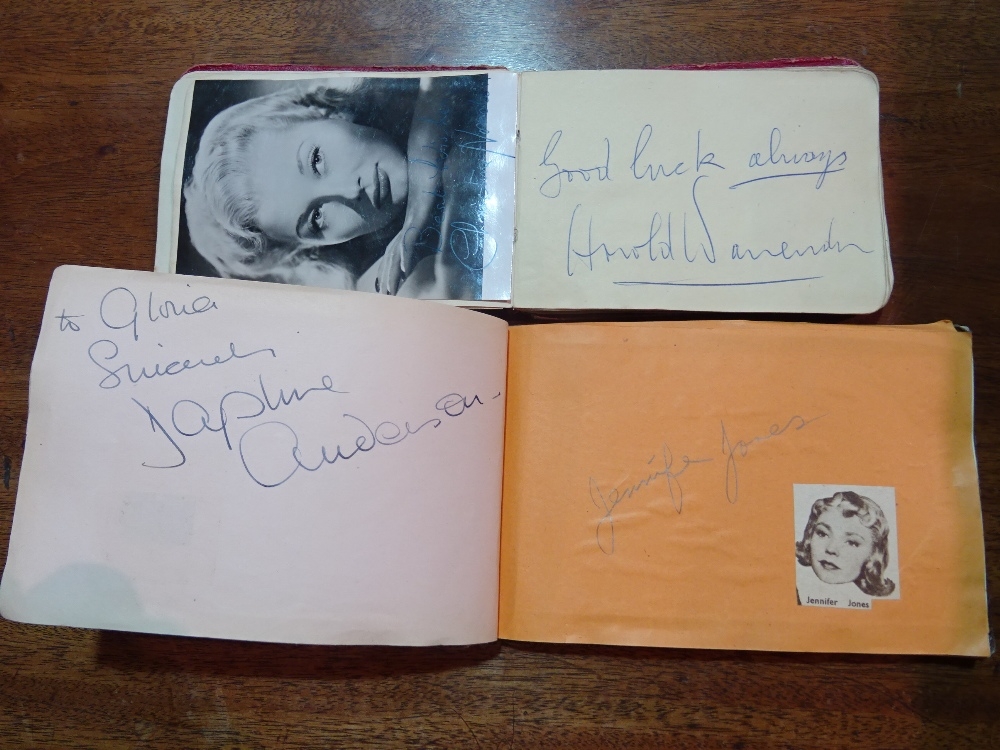 Good luck always
Harold Warrender
to Gloria
Sincerely
Daphne
Anderson.
Jennifer Jones
Jennifer Jones